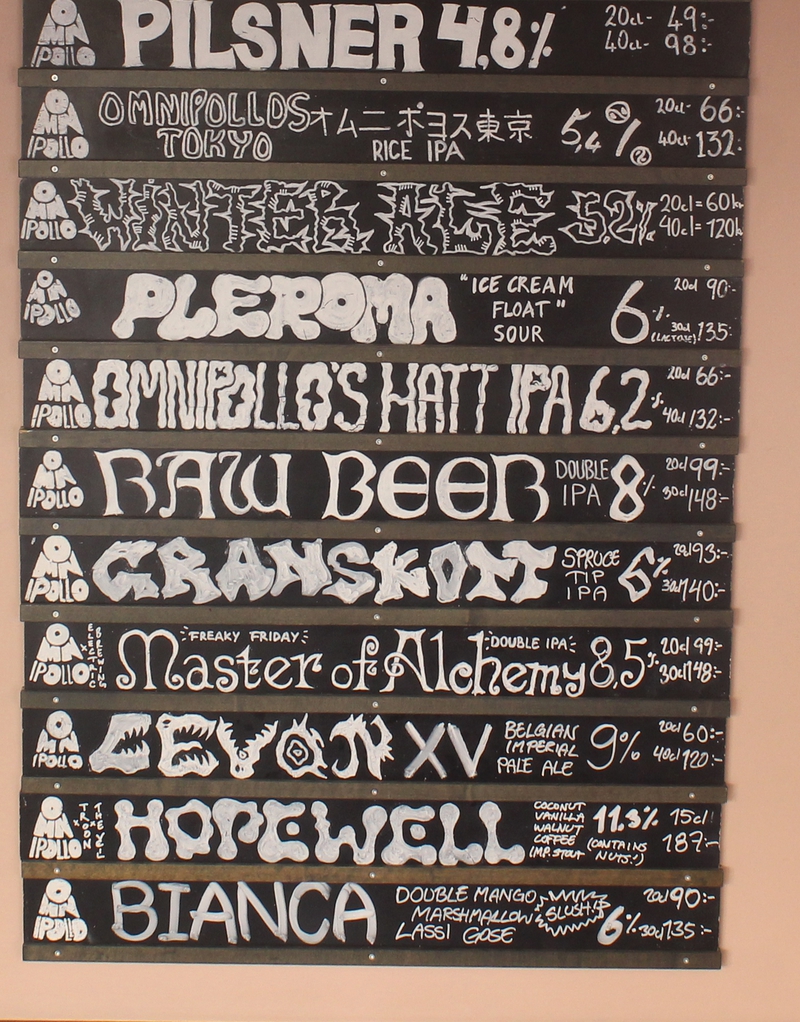 OMNIPOLLO PILSNER 4,8% 20cl- 49:-
40cl- 98:-
OMNIPOLLO OMNIPOLLOS TOKYO オムニポヨス東京 RICE IPA 5,4% 20cl- 66:-
40cl- 132:-
OMNIPOLLO WINTER ALE 5,2% 20cl = 60kr
40cl = 120k
OMNIPOLLO PLEROMA "ICE CREAM 6% 20cl 90:-
FLOAT" (LACTOSE) 30cl 135:-
SOUR
OMNIPOLLO OMNIPOLLO'S HATT IPA 6,2% 20cl 66:-
40cl 132:-
OMNIPOLLO RAW BEER DOUBLE 8% 20cl 99:-
IPA 30cl 148:-
OMNIPOLLO GRANSKOTT SPRUCE 6% 20cl 93:-
TIP 30cl 140:-
IPA
OMNIPOLLO x ELECTRIC BREWING FREAKY FRIDAY DOUBLE IPA
Master of Alchemy 8,5% 20cl 99:-
30cl 148:-
OMNIPOLLO LEVON XV BELGIAN 9% 20cl 60:-
IMPERIAL 40cl 120:-
PALE ALE
OMNIPOLLO x TROON x THE VEIL HOPEWELL COCONUT 11.3% 15cl
VANILLA
WALNUT (CONTAINS 187:-
COFFEE NUTS!)
IMP. STOUT
OMNIPOLLO BIANCA DOUBLE MANGO SLUSH 6% 20cl 90:-
MARSHMALLOW 30cl 135:-
LASSI GOSE